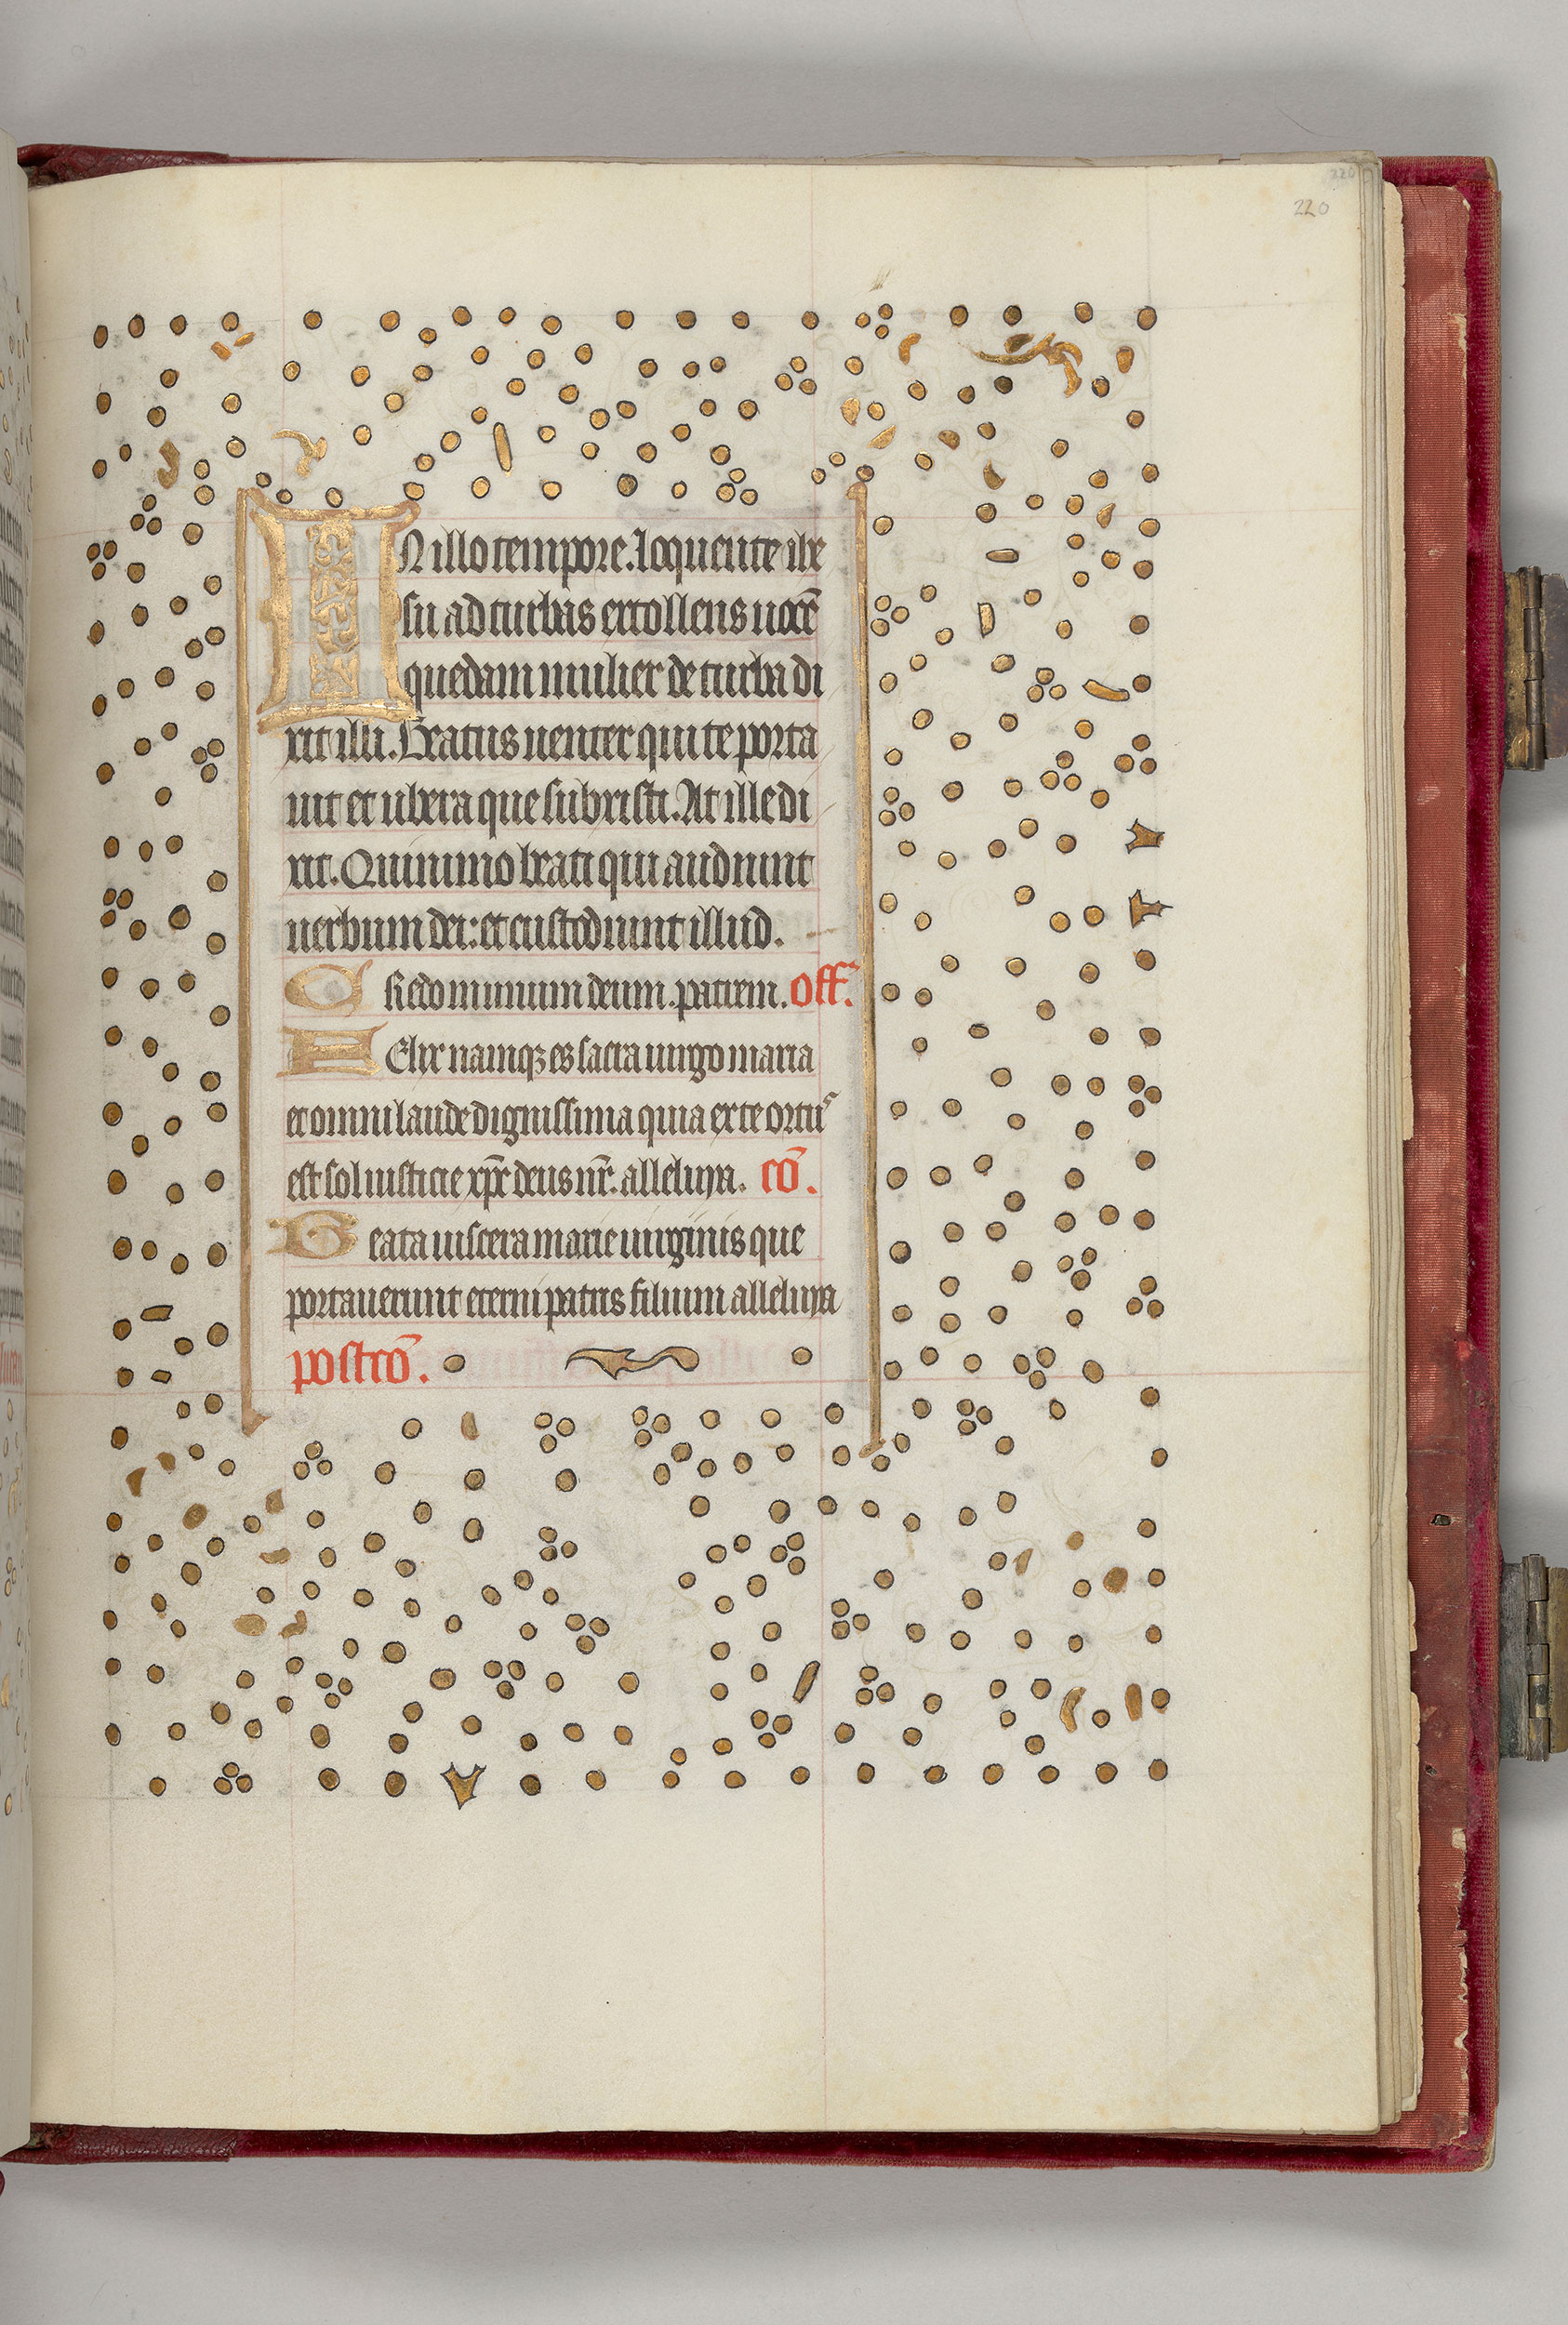 220
220
IN illo tempore. loquente ihe
su ad turbas extollens uocē
quedam mulier de turba di
xit illi. Beatus uenter qui te porta
uit et ubera que subxisti. At ille di
xit. Quinimo beati qui audiunt
uerbum dei: et custodiunt illud.
CRedo in unum deum. patrem. Off̄.
FElix namqꝫ es sacra uirgo maria
et omni laude dignissima quia ex te ortuˢ
est sol iusticie xp̄c deus nr̄. alleluya. cō.
Beata uiscera marie uirginis que
portauerunt eterni patris filium alleluya
postcō.